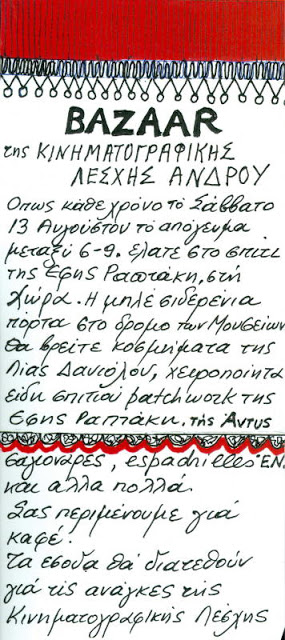 BAZAAR
της ΚΙΝΗΜΑΤΟΓΡΑΦΙΚΗΣ
ΛΕΣΧΗΣ ΑΝΔΡΟΥ
Οπως κάθε χρόνο τό Σάββατο
13 Αυγούστου τό απόγευμα
μεταξύ 6-9. ελατε στο σπίτι
της Εφης Ραπτάκη, στή
Χώρα. Η μπλέ σιδερένια
πόρτα στο δρόμο των Μουσείων
θα βρείτε κοσμήματα της
Λίας Δανιόλου, χειροποίητα
είδη σπιτιού patchwork της
Εφης Ραπτάκη. της Άντυς
σαγιονάρες, espadrilles ΕΝ.
και αλλα πολλά.
Σας περιμένουμε γιά
καφέ!
Τα εσοδα θά διατεθούν
γιά τίς ανάγκες τής
Κινηματογραφικής Λέσχης